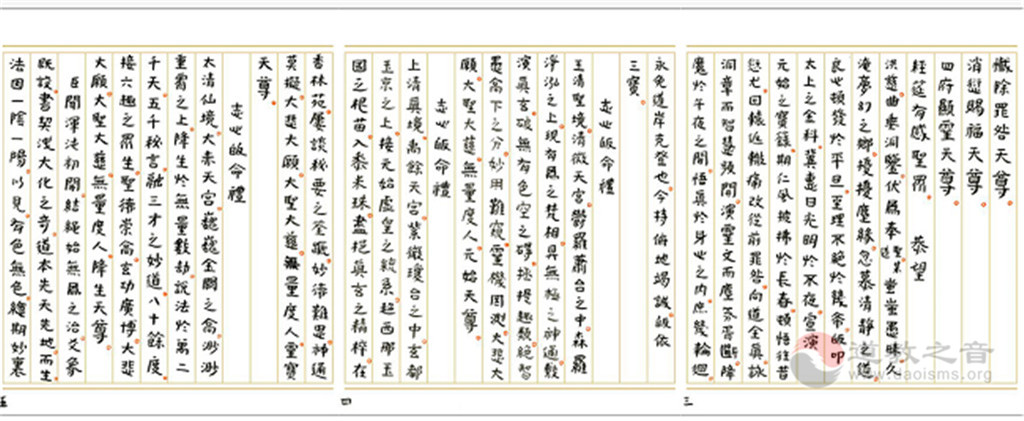 懺除罪咎天尊
消愆賜福天尊
四府顯靈天尊
經筵有感聖眾 恭望
洪慈曲垂洞鑒伏為奉道 蚩蚩愚昧久
淹夢幻之鄉擾擾塵緣忽慕清靜之道
良心頓發於平旦至理不絕於幾希皈叩
太上之金科冀惠日光明於不夜宣演
元始之寶籙期仁風披拂於長春頓悟往昔
愆尤回轅返轍痛改從前罪咎向道全真詠
洞章而智慧頻開演靈文而塵氛胥斷降
魔於午夜之間悟真於身心之內庶幾輪迴
三
永免道岸克登也今特俯地竭誠皈依
三寶
志心皈命禮
玉清聖境清微天宮鬱羅蕭台之中森羅
淨泓之上現有為之梵相具無極之神通敷
演真玄破無有色空之碍拯提趣類絕智
愚高下之分妙用難窺靈機罔測大悲大
願大聖大慈無量度人元始天尊
志心皈命禮
上清真境禹餘天宮紫微瓊台之中玄都
玉京之上接元始虛皇之統系超西那玉
國之根苗入黍米珠盡挹真玄之精粹在
四
香林苑屢談秘要之荃蹄妙諦難思神通
莫擬大悲大願大聖大慈無量度人靈寶
天尊
志心皈命禮
太清仙境大赤天宮巍巍金闕之高渺渺
重霄之上降生於無量數劫說法於萬二
千天五千秘言融三才之妙道八十餘度
接六趣之眾生聖德崇高玄功廣博大悲
大願大聖大慈無量度人降生天尊
臣聞渾沌初開結繩始無為之治爻象
既設書契溥大化之奇道本先天先地而生
法因一陰一陽以見有色無色總期妙裏
五
道教之音
www.daoisms.org